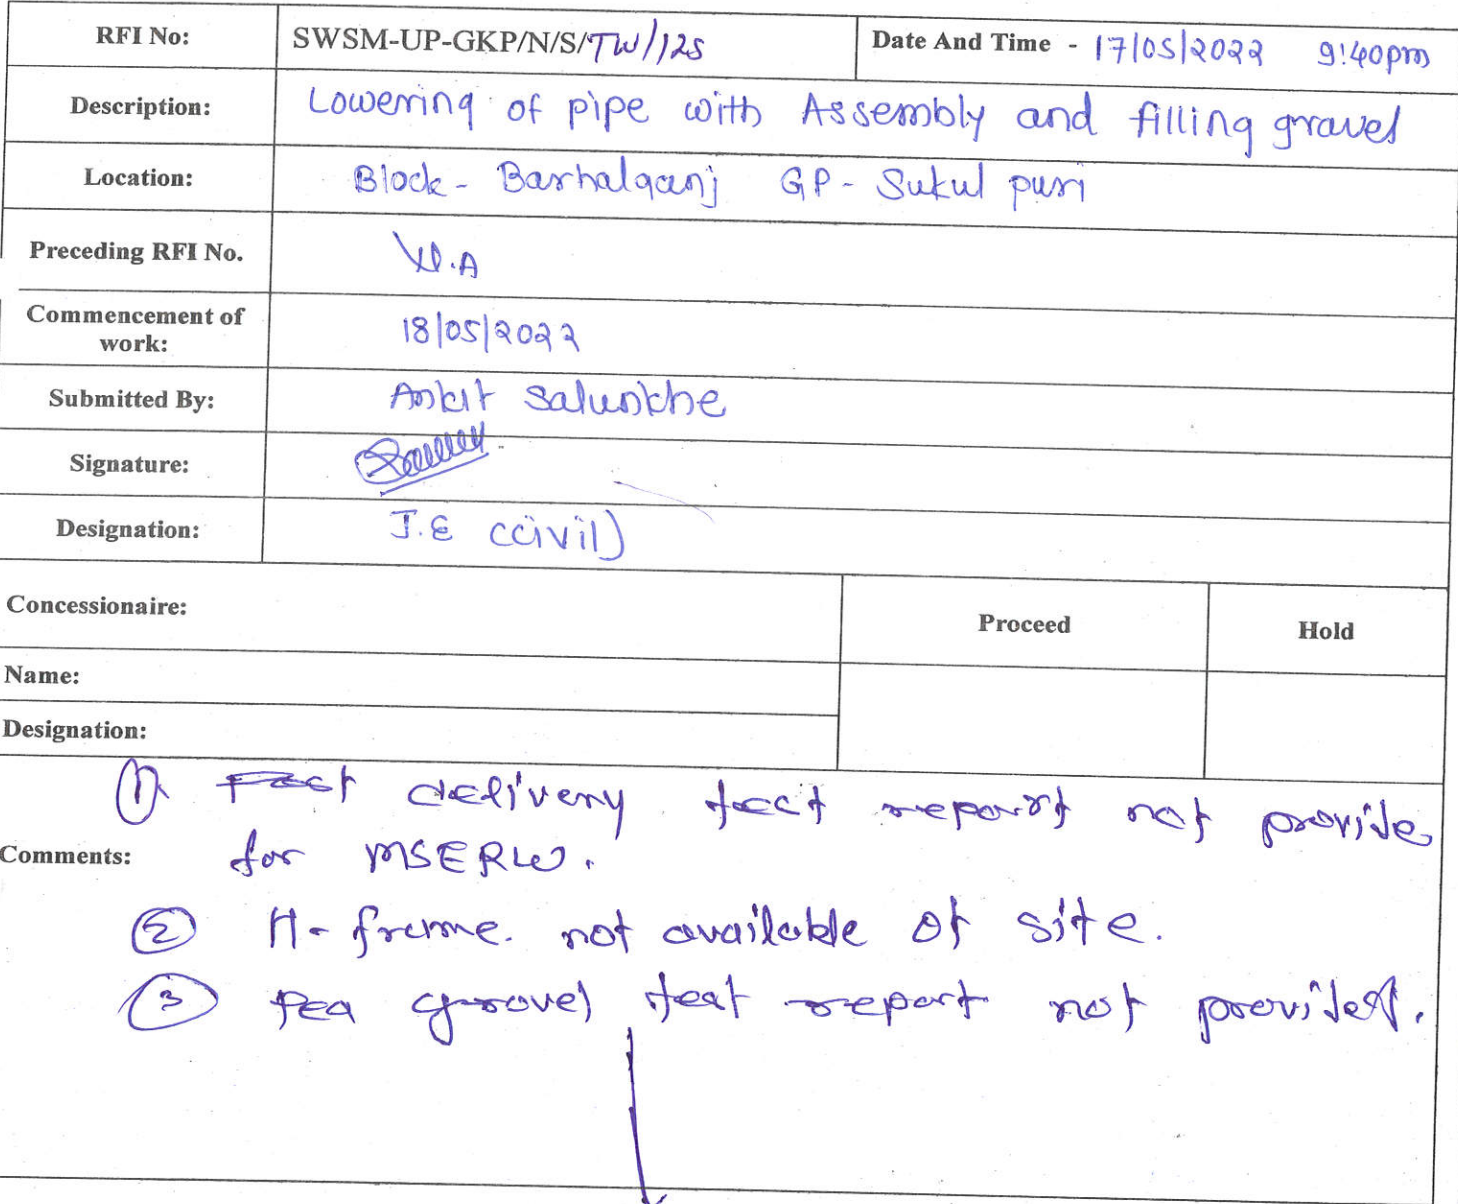 RFI No: SWSM-UP-GKP/N/S/TW/125 Date And Time - 17/05/2022 9:40pm
Description: Lowering of pipe with Assembly and filling gravel
Location: Block - Barhalganj GP - Sukul puri
Preceding RFI No. N.A
Commencement of
work: 18/05/2022
Submitted By: Ankit Salunkhe
Signature:
Designation: J.E (civil)
Concessionaire: Proceed Hold
Name:
Designation:
① Post delivery test report not provide
Comments: for MSERW.
② H-frame. not available at site.
③ Pea gravel test report not provided.